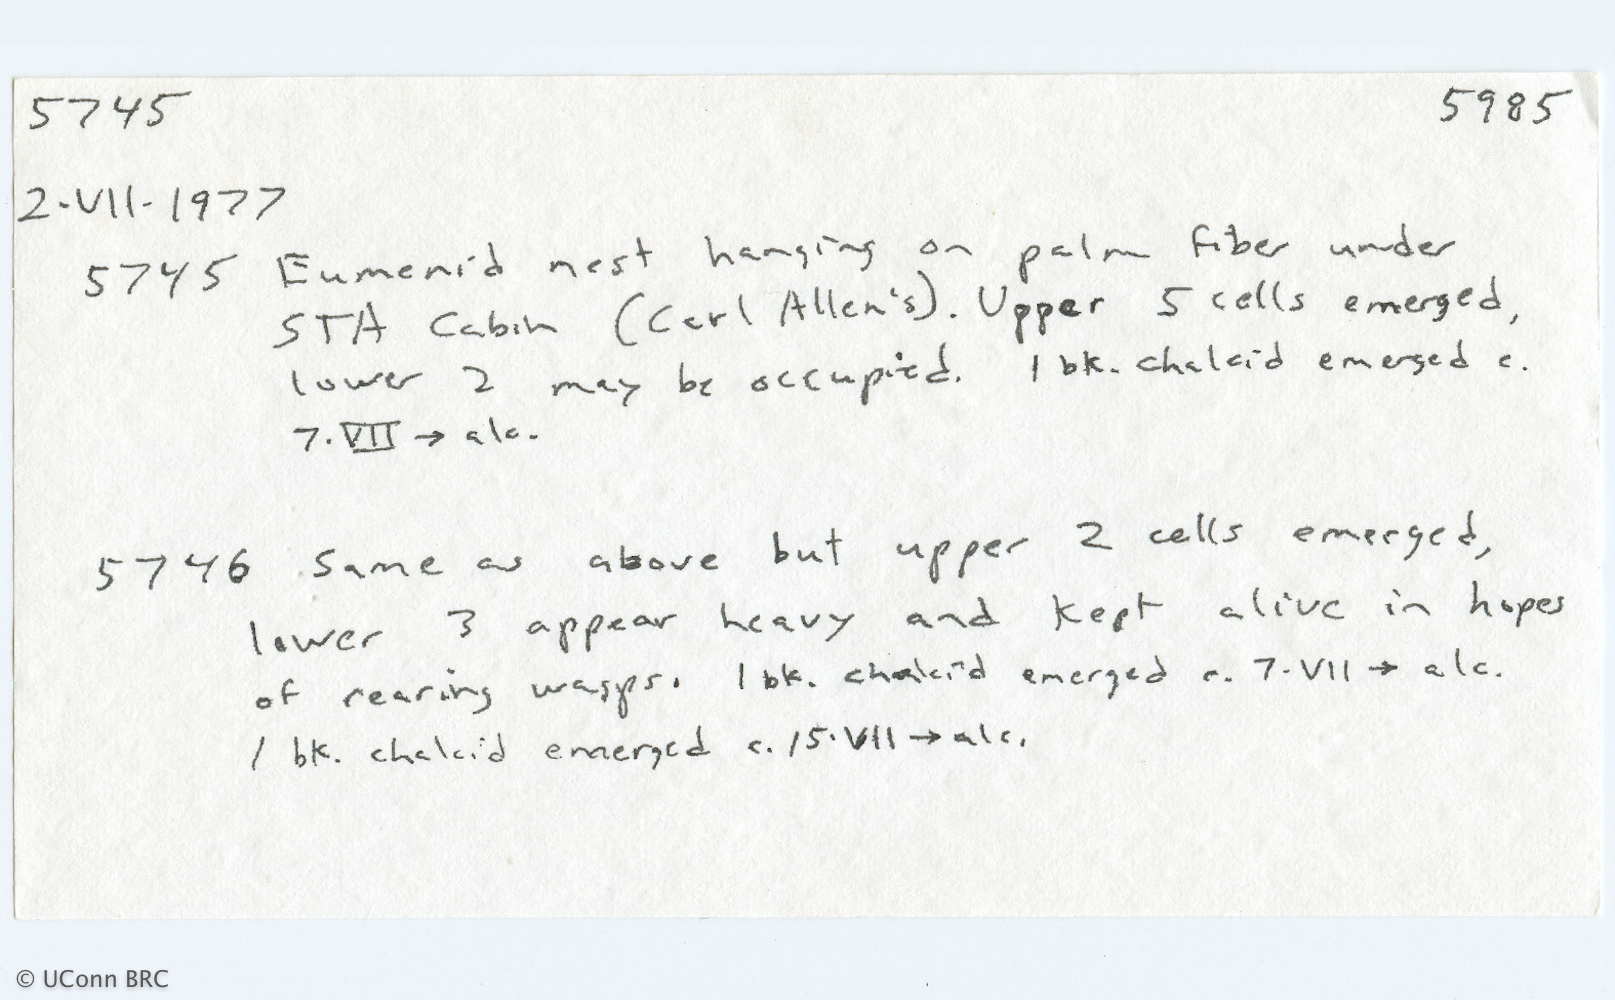 5745 5985
2-VII-1977
5745 Eumenid nest hanging on palm fiber under
STA Cabin (Carl Allen's). Upper 5 cells emerged,
lower 2 may be occupied. 1 bk. chalcid emerged c.
7.VII → alc.
5746 Same as above but upper 2 cells emerged,
lower 3 appear heavy and kept alive in hopes
of rearing wasps. 1 bk. chalcid emerged c. 7-VII → alc.
1 bk. chalcid emerged c. 15.VII → alc.
© UConn BRC